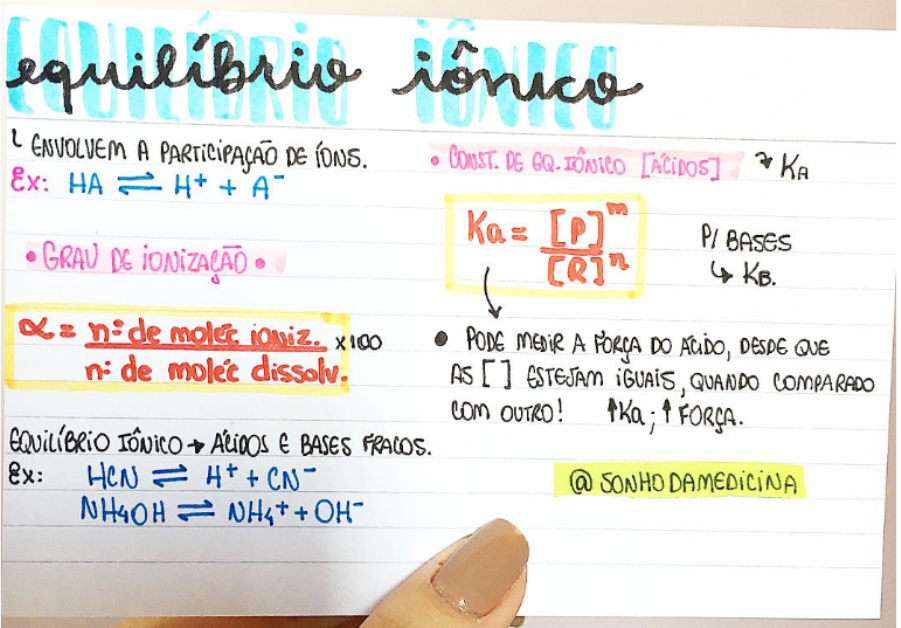 equilíbrio iônico
EQUILÍBRIO IÔNICO
ENVOLVEM A PARTICIPAÇÃO DE ÍONS.
Ex: HA ⇌ H⁺ + A⁻
• GRAU DE IONIZAÇÃO •
α = nº de moléc ioniz. x100
nº de moléc dissolv.
EQUILÍBRIO IÔNICO → ÁCIDOS E BASES FRACOS.
Ex: HCN ⇌ H⁺ + CN⁻
NH4OH ⇌ NH₄⁺ + OH⁻
• CONST. DE EQ. IÔNICO [ÁCIDOS] ↴ KA
Ka = [P]ᵐ
[R]ⁿ
P/ BASES
↳ KB.
• PODE MEDIR A FORÇA DO ÁCIDO, DESDE QUE
AS [ ] ESTEJAM IGUAIS, QUANDO COMPARADO
COM OUTRO! ↑Ka; ↑FORÇA.
@SONHODAMEDICINA